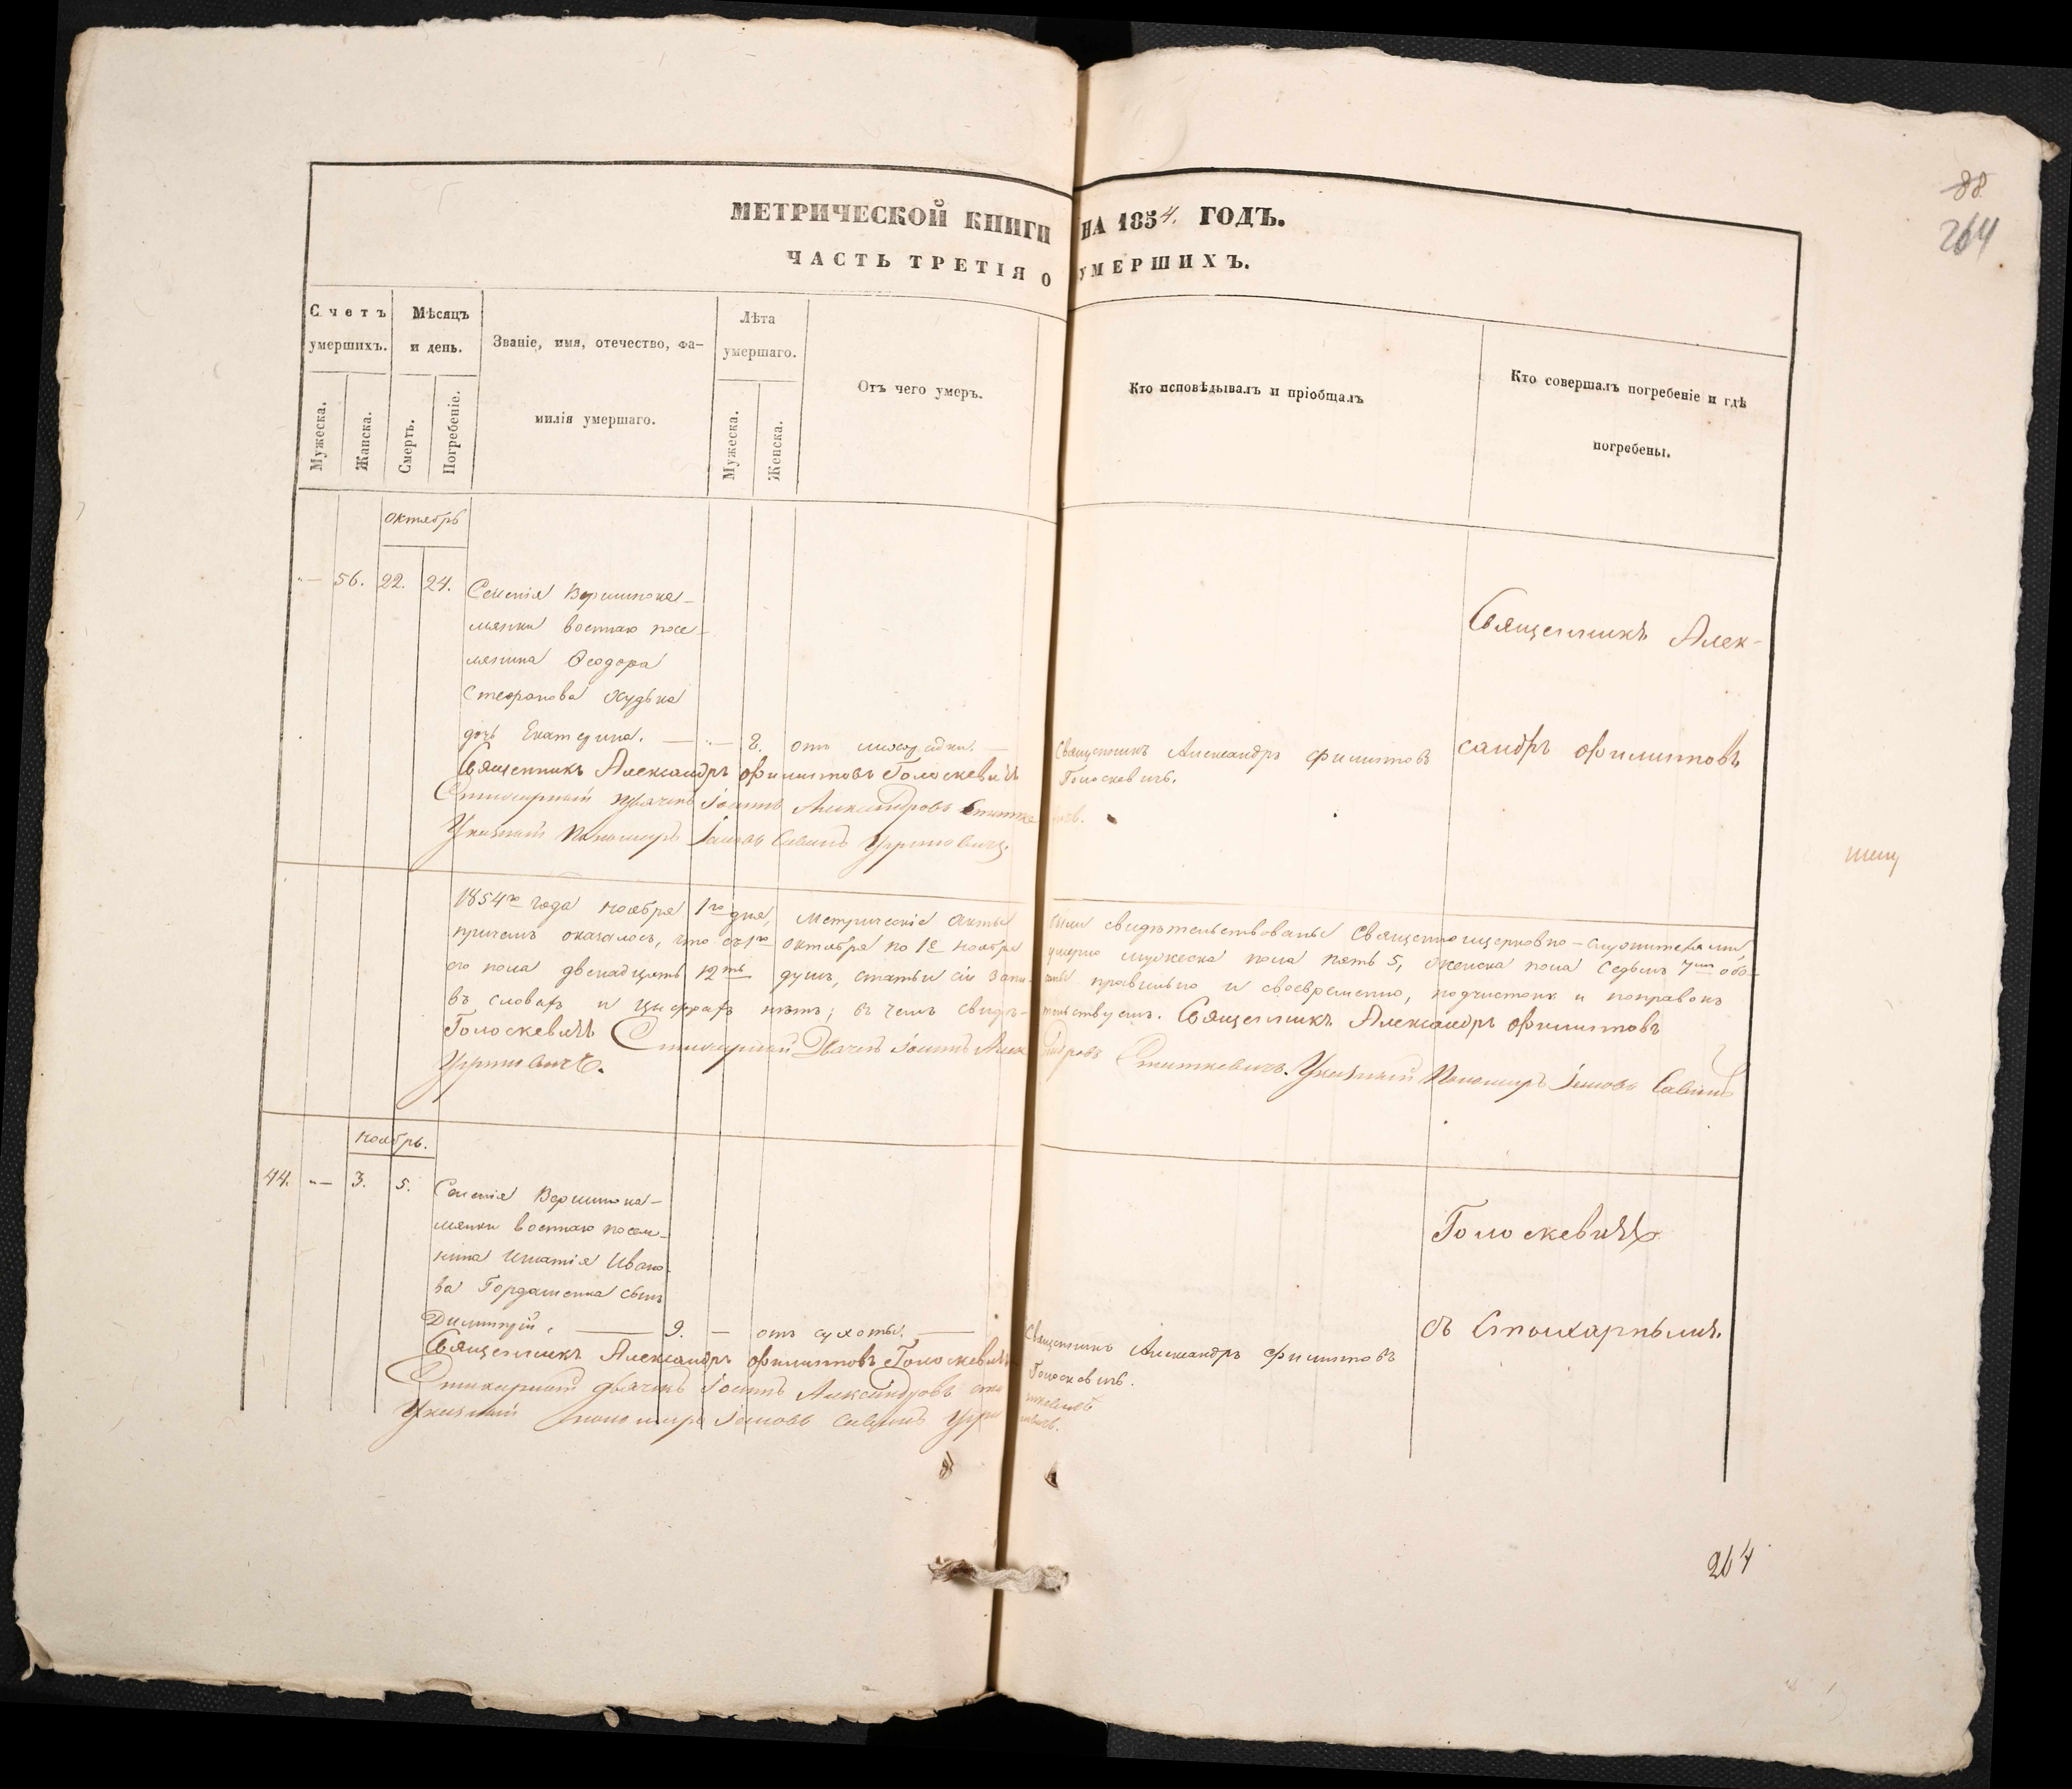 88
264
МЕТРИЧЕСКОЙ КНИГИ НА 1854. ГОДЪ.
ЧАСТЬ ТРЕТІЯ О УМЕРШИХЪ.
Счетъ умершихъ.
Мужеска.
Жанска.
Мѣсяцъ и день.
Смерть.
Погребеніе.
Званіе, имя, отечество, фа-
милія умершаго.
Лѣта умершаго.
Мужеска.
Женска.
Отъ чего умеръ.
Кто исповѣдывалъ и пріобщалъ
Кто совершалъ погребеніе и гдѣ
погребены.
октябрь
56. 22. 24. Селенія Вершинока-
мянки военнаго посе-
лянина Ѳеодора
Стефанова Худька
дочь Екатерина. — 8. отъ лихорадки. — Священникъ Александръ Филиповъ
Голоскевичъ.
Священникъ Алек-
сандръ Филиповъ
Священникъ Александръ Филиповъ Голоскевичъ
Стихарный дьячекъ Іоаннъ Александровъ
Указный Пономарь Іаковъ Саввинъ
1854го года ноября 1го дня, метрическіе акты были свидѣтельствованы Священноцерковно-служителями,
причемъ оказалось, что съ 1го октября по 1е ноября умерло мужеска пола пять 5, женска пола седьмъ 7мъ обо-
его пола двенадцать 12ть душъ, статьи сіи записаны правильно и своевременно, подчистокъ и поправокъ
въ словахъ и цифрахъ нѣтъ; въ чемъ свидѣтельствуемъ. Священникъ Александръ Филиповъ
Голоскевичъ Стихарный Дьячекъ Іоаннъ Александровъ Указный Пономарь Іаковъ Саввинъ
ноябрь.
44. — 3. 5. Селенія Вершинока-
мянки военнаго поселя-
нина Игнатія Ивано-
ва Гордашенка сынъ
Димитрій. — 9. — отъ сухоты. — Священникъ Александръ Филиповъ
Голоскевичъ.
Голоскевичъ
съ Стихарнымъ.
Священникъ Александръ Филиповъ Голоскевичъ
Стихарный дьячекъ Іоаннъ Александровъ
Указный пономарь Іаковъ Саввинъ
264